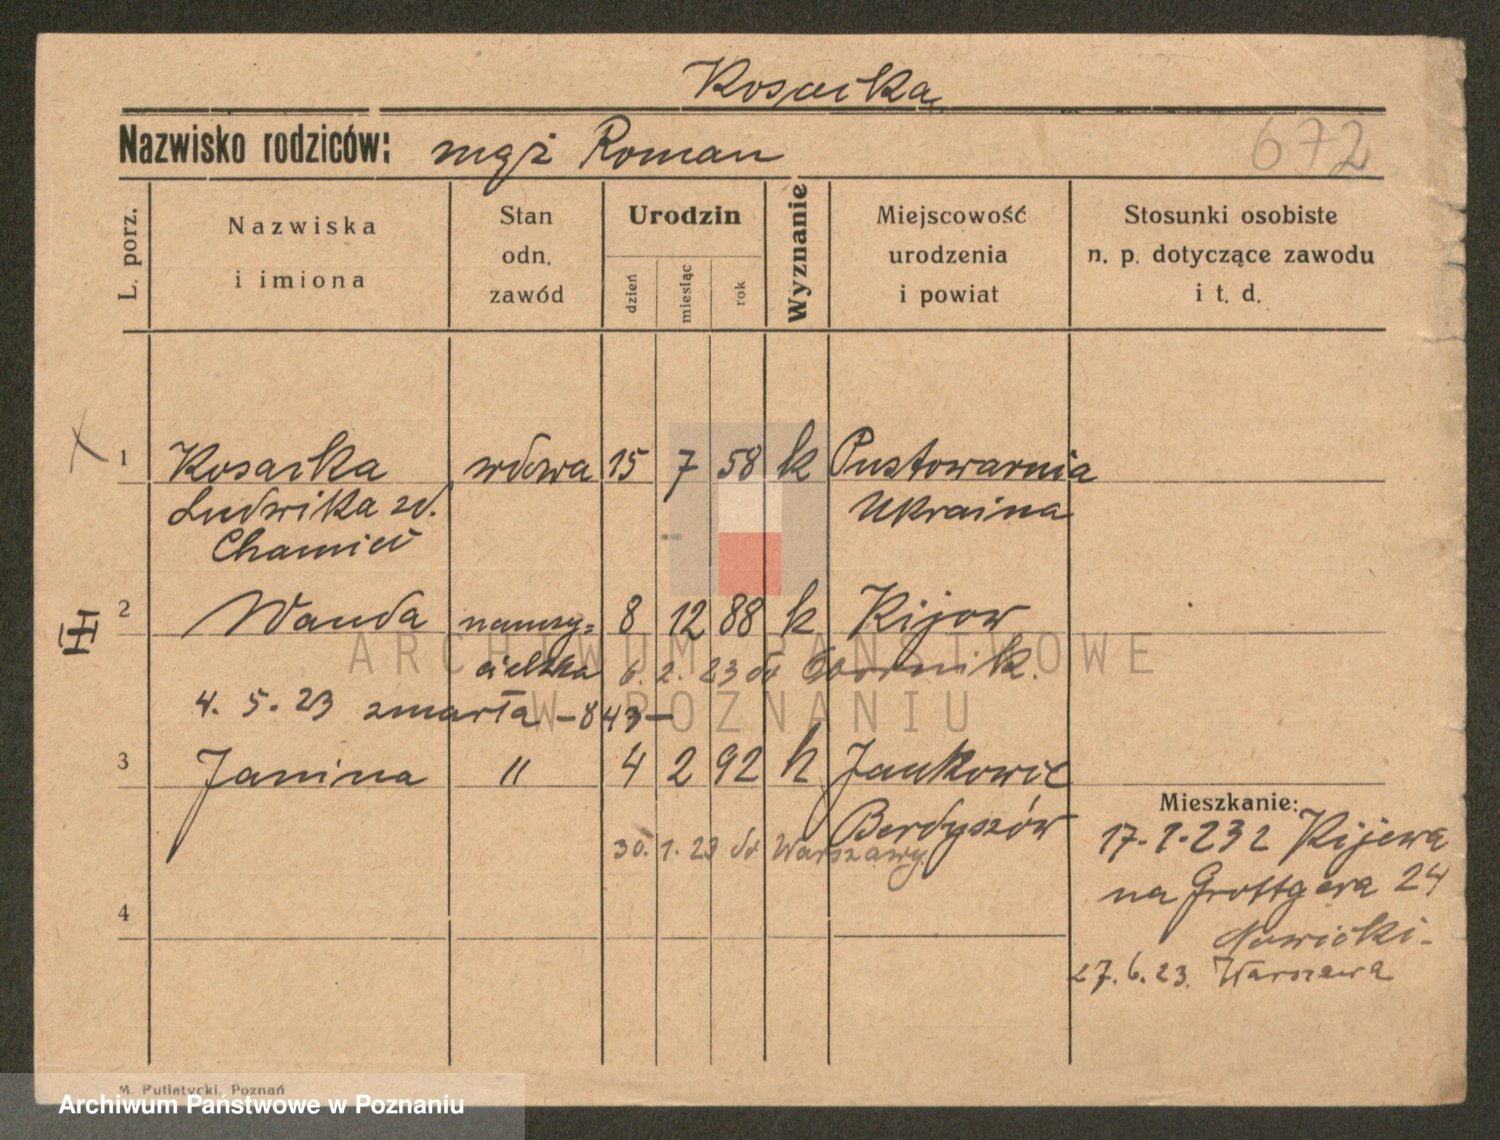 Kosacka
Nazwisko rodziców: mąż Roman
672
L. porz.
Nazwiska
i imiona
Stan
odn.
zawód
Urodzin
dzień
miesiąc
rok
Wyznanie
Miejscowość
urodzenia
i powiat
Stosunki osobiste
n. p. dotyczące zawodu
i t. d.
1 Kosacka wdowa 15 7 58 k Pustowarnia
Ludwika zd. Ukraina
Chamiec
2 Wanda nauczy= 8 12 88 k Kijow
cielka 6. 2. 23 do Kórnik.
4. 5. 23 zmarła – 843 –
3 Janina " 4 2 92 k Jankowic
Berdyszów
30. 1. 23 do Warszawy.
Mieszkanie:
17. 1. 23 z Kijewa
na Grottgera 24
Nowicki.
27. 6. 23. Warszawa
4
M. Putiatycki, Poznań
ARCHIWUM PAŃSTWOWE
W POZNANIU
Archiwum Państwowe w Poznaniu